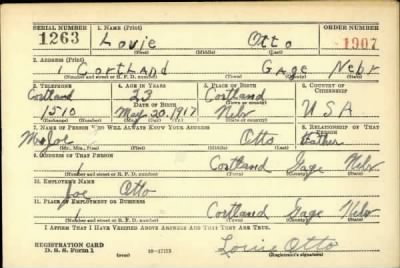 SERIAL NUMBER 1. NAME (Print) ORDER NUMBER
1263 Lovie Otto 1907
(First) (Middle) (Last)
2. ADDRESS (Print)
1 Cortland Gage Nebr
(Number and street or R. F. D. number) (Town) (County) (State)
3. TELEPHONE 4. AGE IN YEARS 5. PLACE OF BIRTH 6. COUNTRY OF CITIZENSHIP
Cortland 23 Cortland
DATE OF BIRTH (Town or county)
1510 May 30, 1917 Nebr U S A
(Exchange) (Number) (Mo.) (Day) (Yr.) (State or country)
7. NAME OF PERSON WHO WILL ALWAYS KNOW YOUR ADDRESS 8. RELATIONSHIP OF THAT PERSON
Mr Joe Otto Father
(Mr., Mrs., Miss) (First) (Middle) (Last)
9. ADDRESS OF THAT PERSON
Cortland Gage Nebr
(Number and street or R. F. D. number) (Town) (County) (State)
10. EMPLOYER'S NAME
Joe Otto
11. PLACE OF EMPLOYMENT OR BUSINESS
1 Cortland Gage Nebr
(Number and street or R. F. D. number) (Town) (County) (State)
I AFFIRM THAT I HAVE VERIFIED ABOVE ANSWERS AND THAT THEY ARE TRUE.
REGISTRATION CARD
D. S. S. Form 1 (over) 16-17105 Louie Otto
(Registrant's signature)